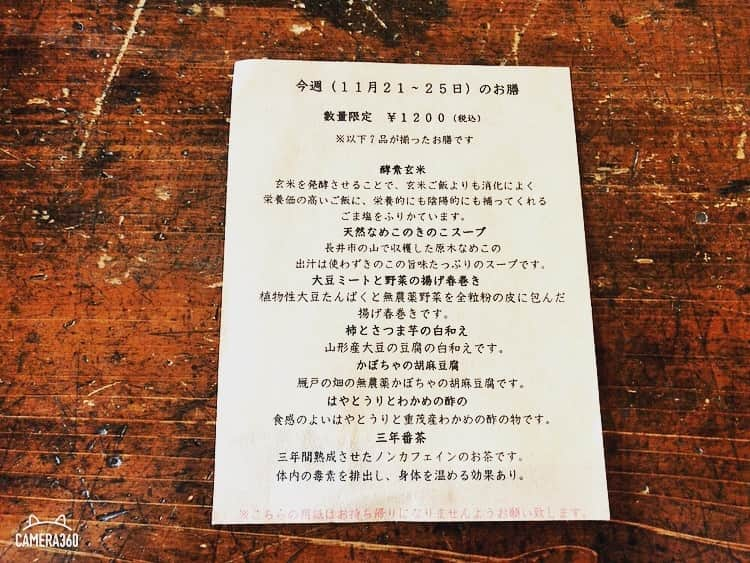 今週(11月21~25日)のお膳
数量限定 ¥1200(税込)
※以下7品が揃ったお膳です
酵素玄米
玄米を発酵させることで、玄米ご飯よりも消化によく
栄養価の高いご飯に、栄養的にも陰陽的にも補ってくれる
ごま塩をふりかています。
天然なめこのきのこスープ
長井市の山で収穫した原木なめこの
出汁は使わずきのこの旨味たっぷりのスープです。
大豆ミートと野菜の揚げ春巻き
植物性大豆たんぱくと無農薬野菜を全粒粉の皮に包んだ
揚げ春巻きです。
柿とさつま芋の白和え
山形産大豆の豆腐の白和えです。
かぼちゃの胡麻豆腐
厩戸の畑の無農薬かぼちゃの胡麻豆腐です。
はやとうりとわかめの酢の
食感のよいはやとうりと重茂産わかめの酢の物です。
三年番茶
三年間熟成させたノンカフェインのお茶です。
体内の毒素を排出し、身体を温める効果あり。
※こちらの用紙はお持ち帰りになりませんようお願い致します。
CAMERA360